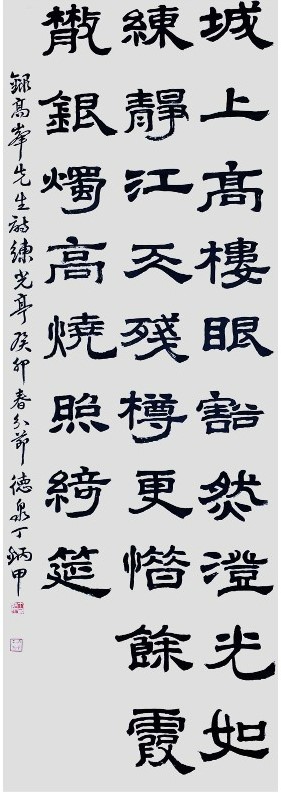 城上髙樓眼豁然澄光如
練靜江天殘樽更惜餘霞
散銀燭高燒照綺筵
錄高峯先生詩練光亭癸卯春分節德泉丁鈵甲